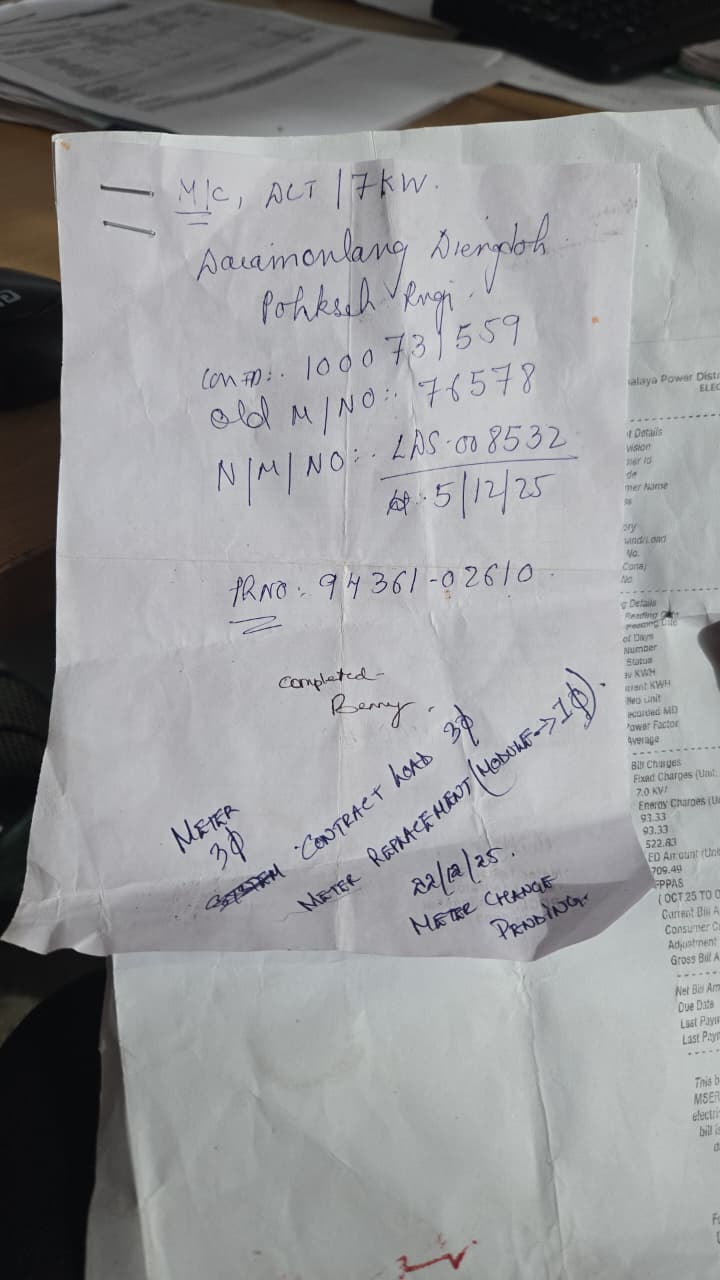 M/c, DCT / 7KW.
Daiamonlang Diengdoh
Pohkseh Rngi.
Con ID:. 1000731559
Old M/NO:. 76578
N/M/NO:. LDS.008532
5/12/25
PR NO:. 94361-02610.
Completed-
Benny.
METER
3φ
SYSTEM
CONTRACT LOAD 3φ
METER REPLACEMENT (MODULE->1φ).
22/12/25.
METER CHANGE
PENDING.
alaya Power Dist
ELEC
t Details
vision
mer Id
de
mer Name
ss
ory
and/Load
No.
Cona)
No
g Details
Reading Date
of Days
Number
Status
av KWH
Neo unit
ecorded MD
Power Factor
Average
Bill Charges
Fixed Charges (Unit,
7.0 KV/
Energy Charges (U
93.33
93.33
522.83
ED Amount (Uni
709.49
FPPAS
( OCT 25 TO
Current Bill A
Consumer C
Adjustment
Gross Bill A
Net Bill Am
Due Date
Last Payn
Last Paym
This b
MSER
electri
bill is